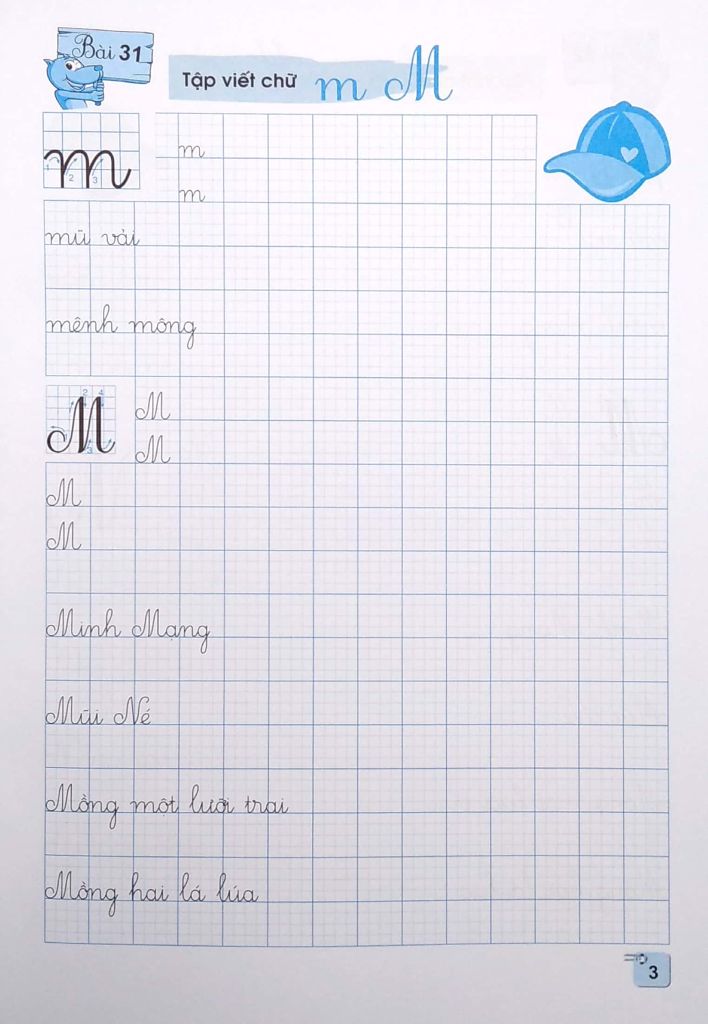 Bài 31
Tập viết chữ m M
m
1 2 3
m
m
mũ vải
mênh mông
M
2 4
3
M
M
M
M
Minh Mạng
Mũi Né
Mồng một lưỡi trai
Mồng hai lá lúa
3